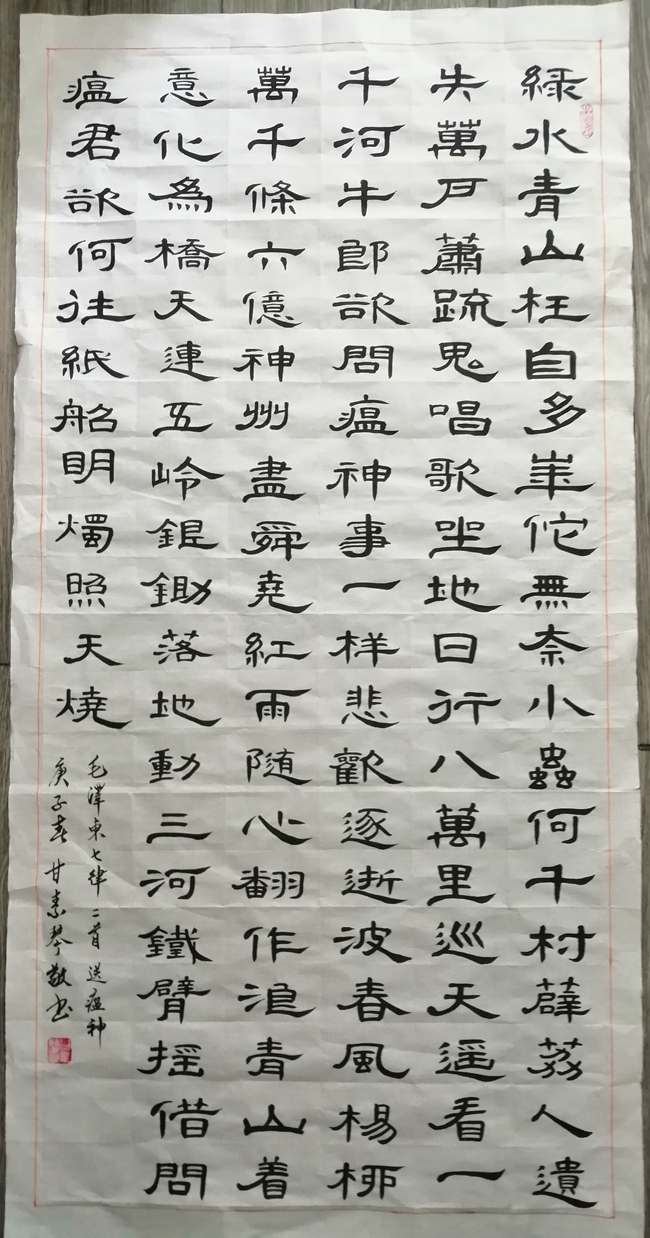 緑水青山枉自多崋佗無奈小蟲何千村薜荔人遺
失萬戸蕭疏鬼唱歌坐地日行八萬里巡天遥看一
千河牛郎欲問瘟神事一样悲歡逐逝波春風楊柳
萬千條六億神州盡舜堯紅雨随心翻作浪青山着
意化爲橋天連五岭銀鋤落地動三河鐵臂摇借問
瘟君欲何往紙船明燭照天燒
毛澤東七律二首 送瘟神
庚子春 甘素琴敬书